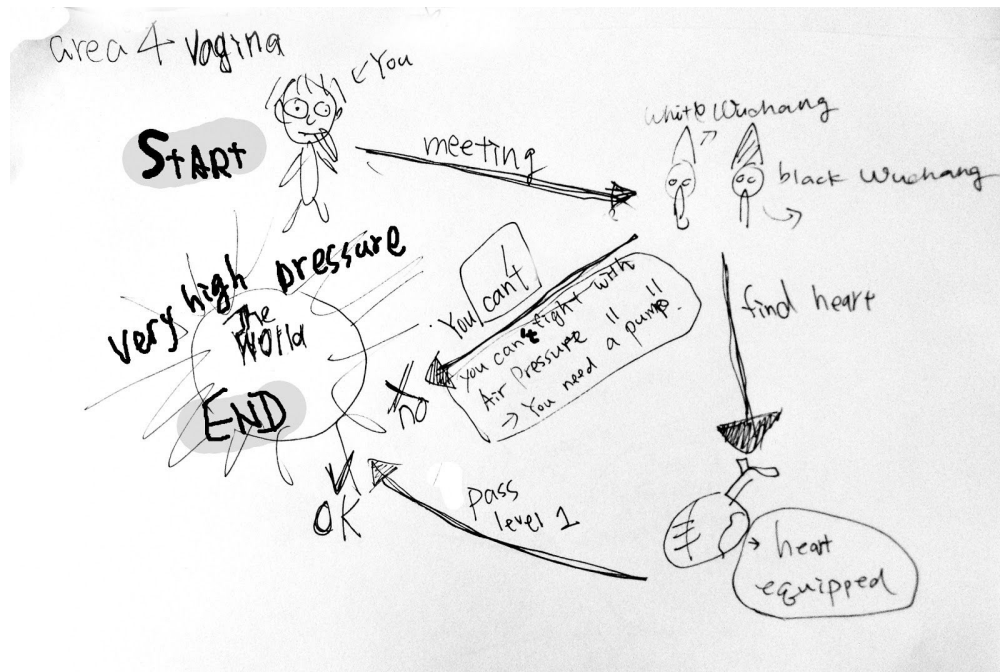 area 4 vagina
You
START
meeting
white Wuchang
black Wuchang
very high pressure
The
World
END
You can't!
you can't fight with
Air pressure !!
→ You need a pump!!
no
find heart
pass
level 1
OK
→ heart
equipped